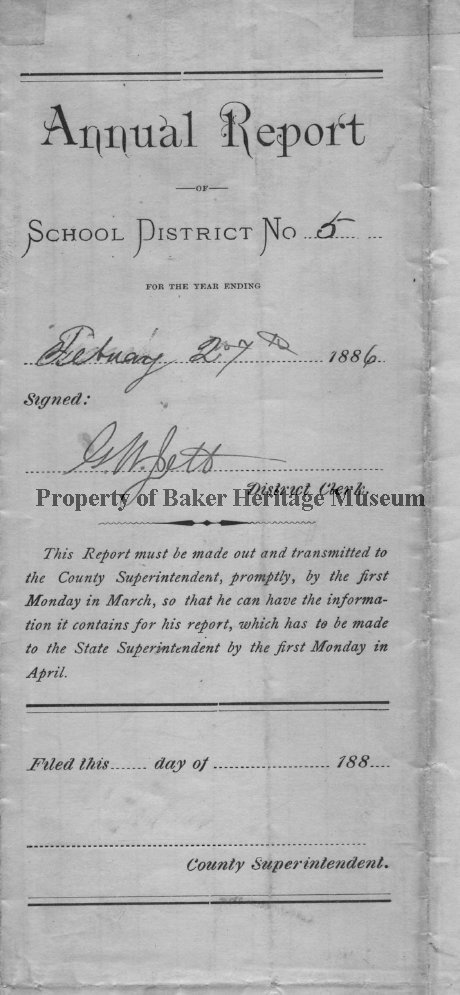 Annual Report
OF
SCHOOL DISTRICT NO 5
FOR THE YEAR ENDING
Febuary 27th 1886
Signed:
G. W. Jett
District Clerk.
Property of Baker Heritage Museum
This Report must be made out and transmitted to
the County Superintendent, promptly, by the first
Monday in March, so that he can have the informa-
tion it contains for his report, which has to be made
to the State Superintendent by the first Monday in
April.
Filed this day of 188
County Superintendent.